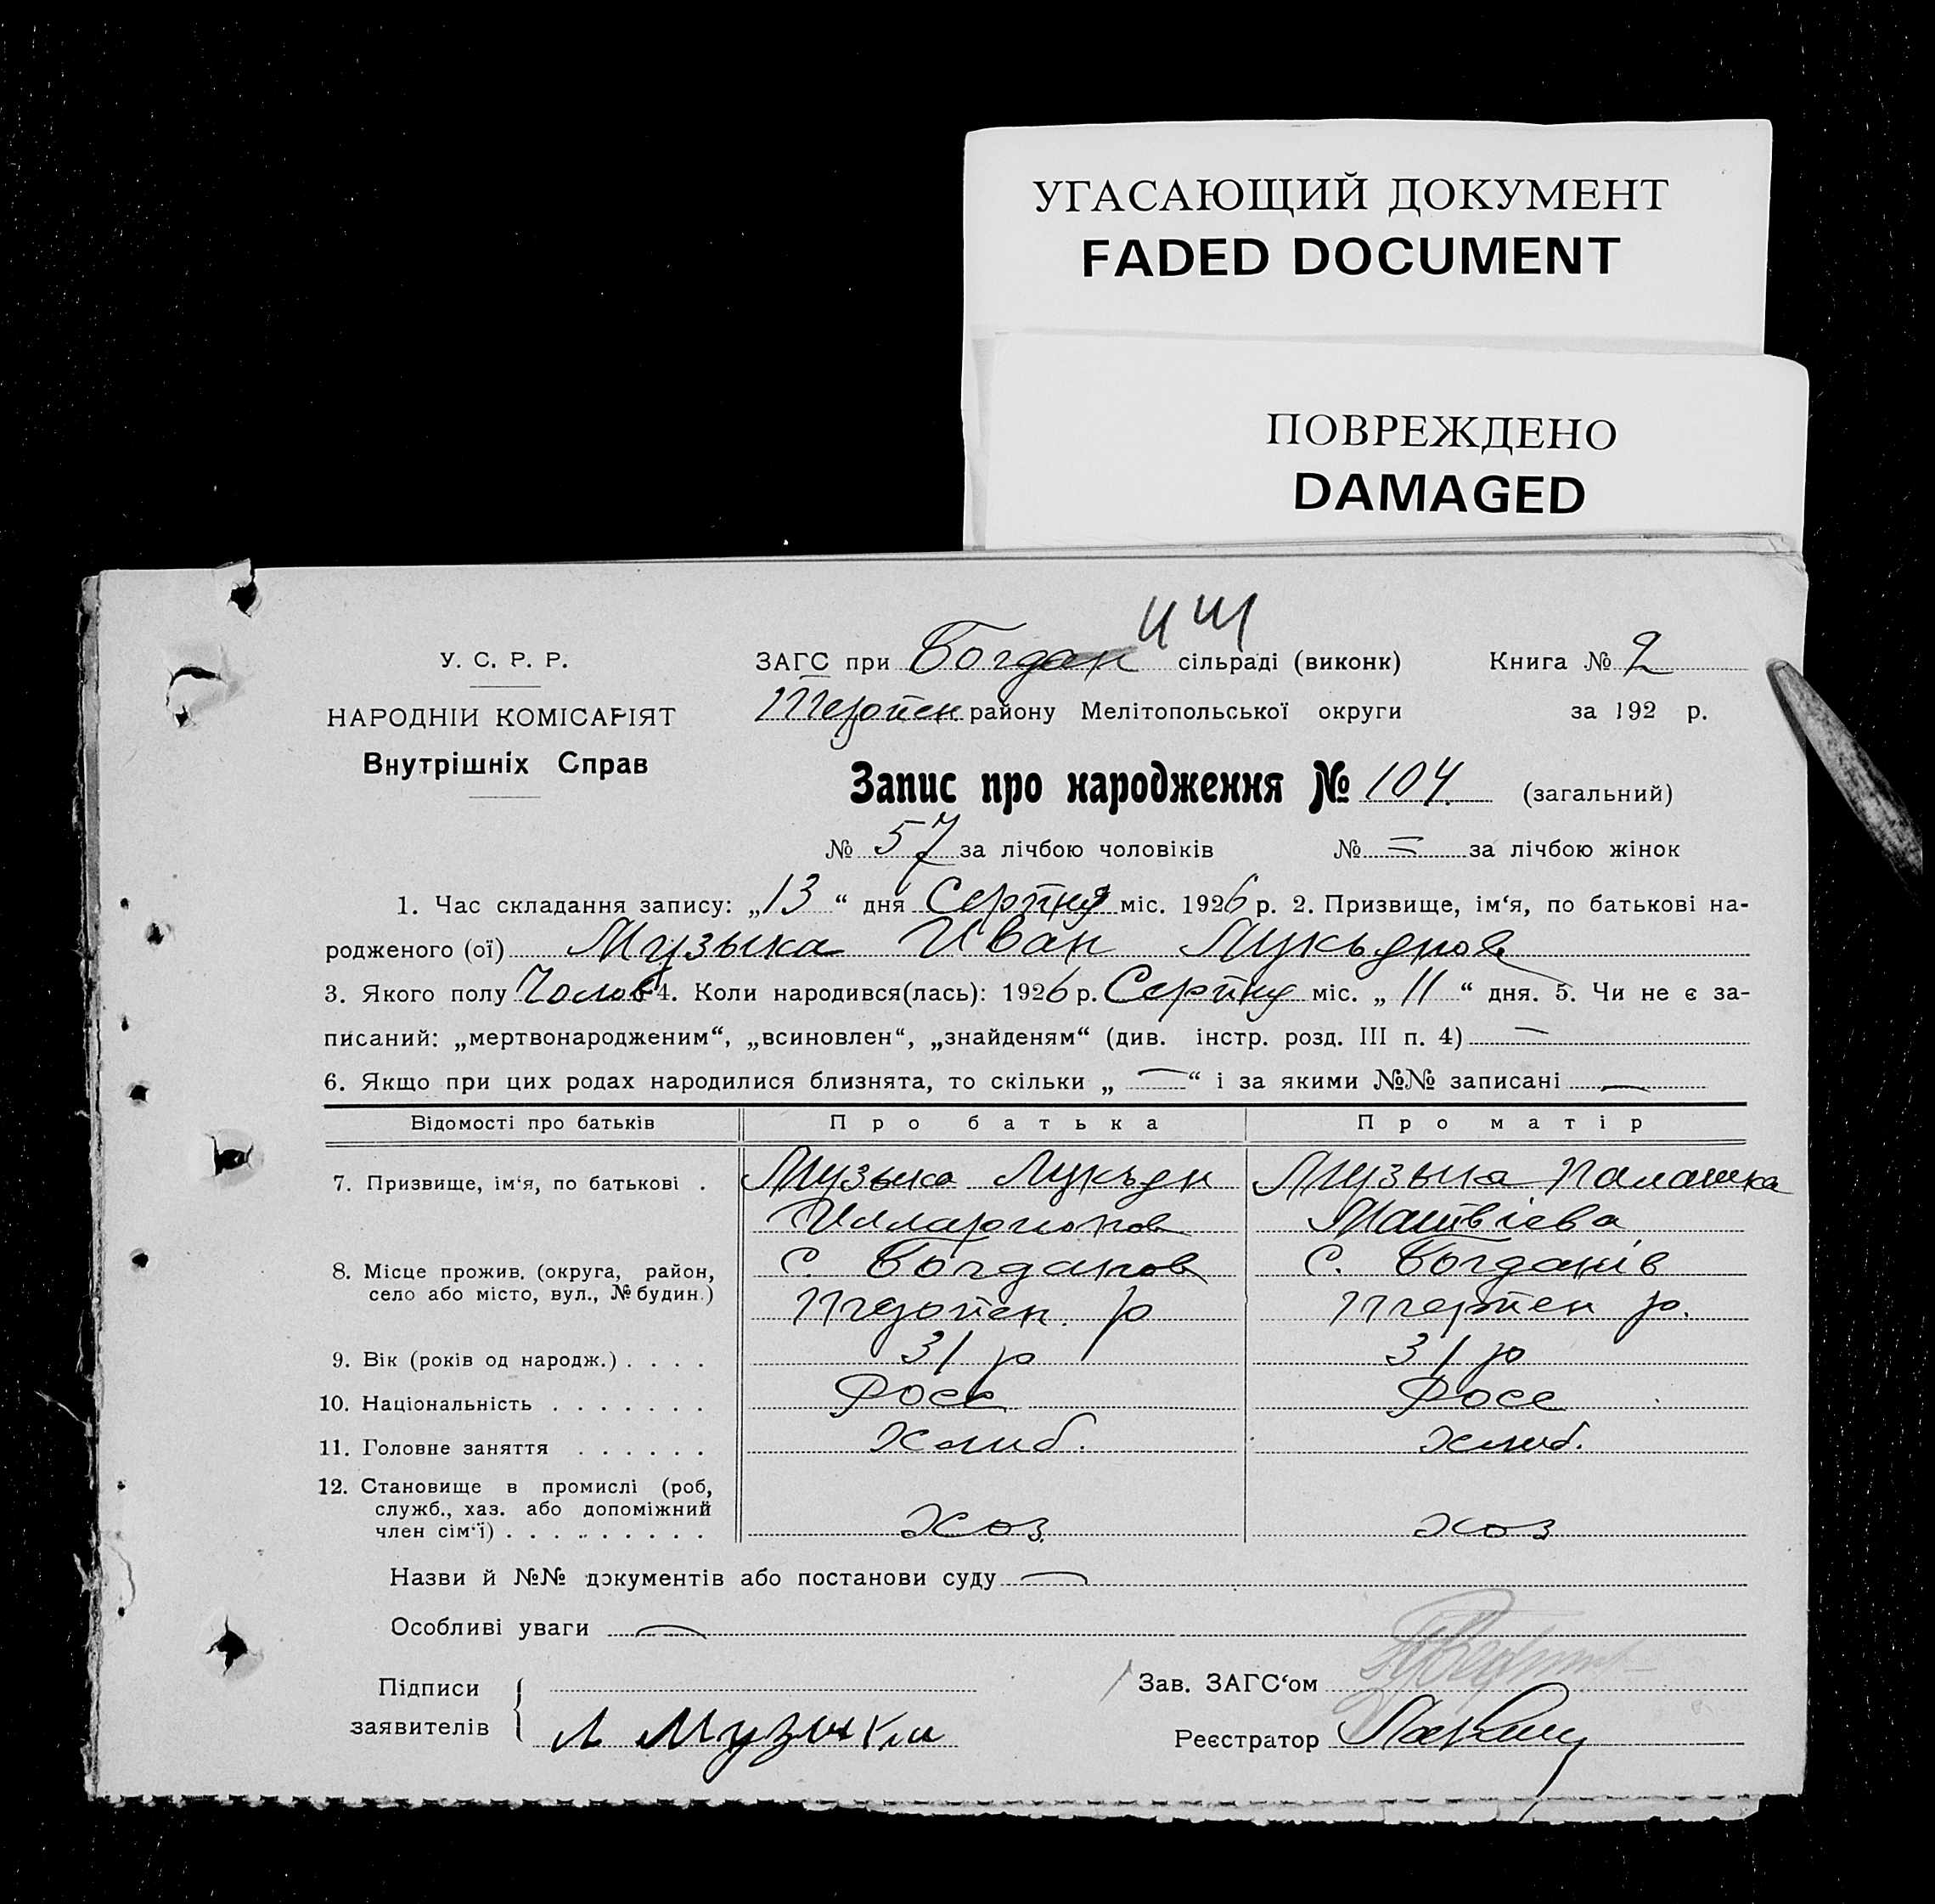 УГАСАЮЩИЙ ДОКУМЕНТ
FADED DOCUMENT
ПОВРЕЖДЕНО
DAMAGED
У. С. Р. Р.
НАРОДНІИ КОМІСАРІЯТ
Внутрішніх Справ
ЗАГС при Богдан сільраді (виконк) Книга № 2
Терпен району Мелітопольської округи за 192 р.
Запис про народження № 104. (загальний)
№ 57 за лічбою чоловіків № = за лічбою жінок
1. Час складання запису: „13“ дня Серпня міс. 1926 р. 2. Призвище, ім‘я, по батькові на-
родженого (ої) Музыка Иван Лукьянов
3. Якого полу Чолов 4. Коли народився(лась): 1926 р. Серпня міс. „11“ дня. 5. Чи не є за-
писаний: „мертвонародженим“, „всиновлен“, „знайденям“ (див. інстр. розд. III п. 4) —
6. Якщо при цих родах народилися близнята, то скільки „ — “ і за якими №№ записані —
Відомості про батьків Про батька Про матір
7. Призвище, ім‘я, по батькові . Музыка Лукьян Музыка Палашка
Илларионов Матвіева
8. Місце прожив. (округа, район, с. Богданов с. Богданів
село або місто, вул., № будин.) Терпен. р Терпен р.
9. Вік (років од народж.) . . . . 31 р 31 р
10. Національність . . . . . . . Росс Росс
11. Головне заняття . . . . . . Хлиб. Хлиб.
12. Становище в промислі (роб,
служб., хаз. або допоміжний
член сім‘ї) . . . . . . . . . Хоз. хоз
Назви й №№ документів або постанови суду —
Особливі уваги —
Підписи
заявителів Л Музыка
Зав. ЗАГС‘ом
Реєстратор